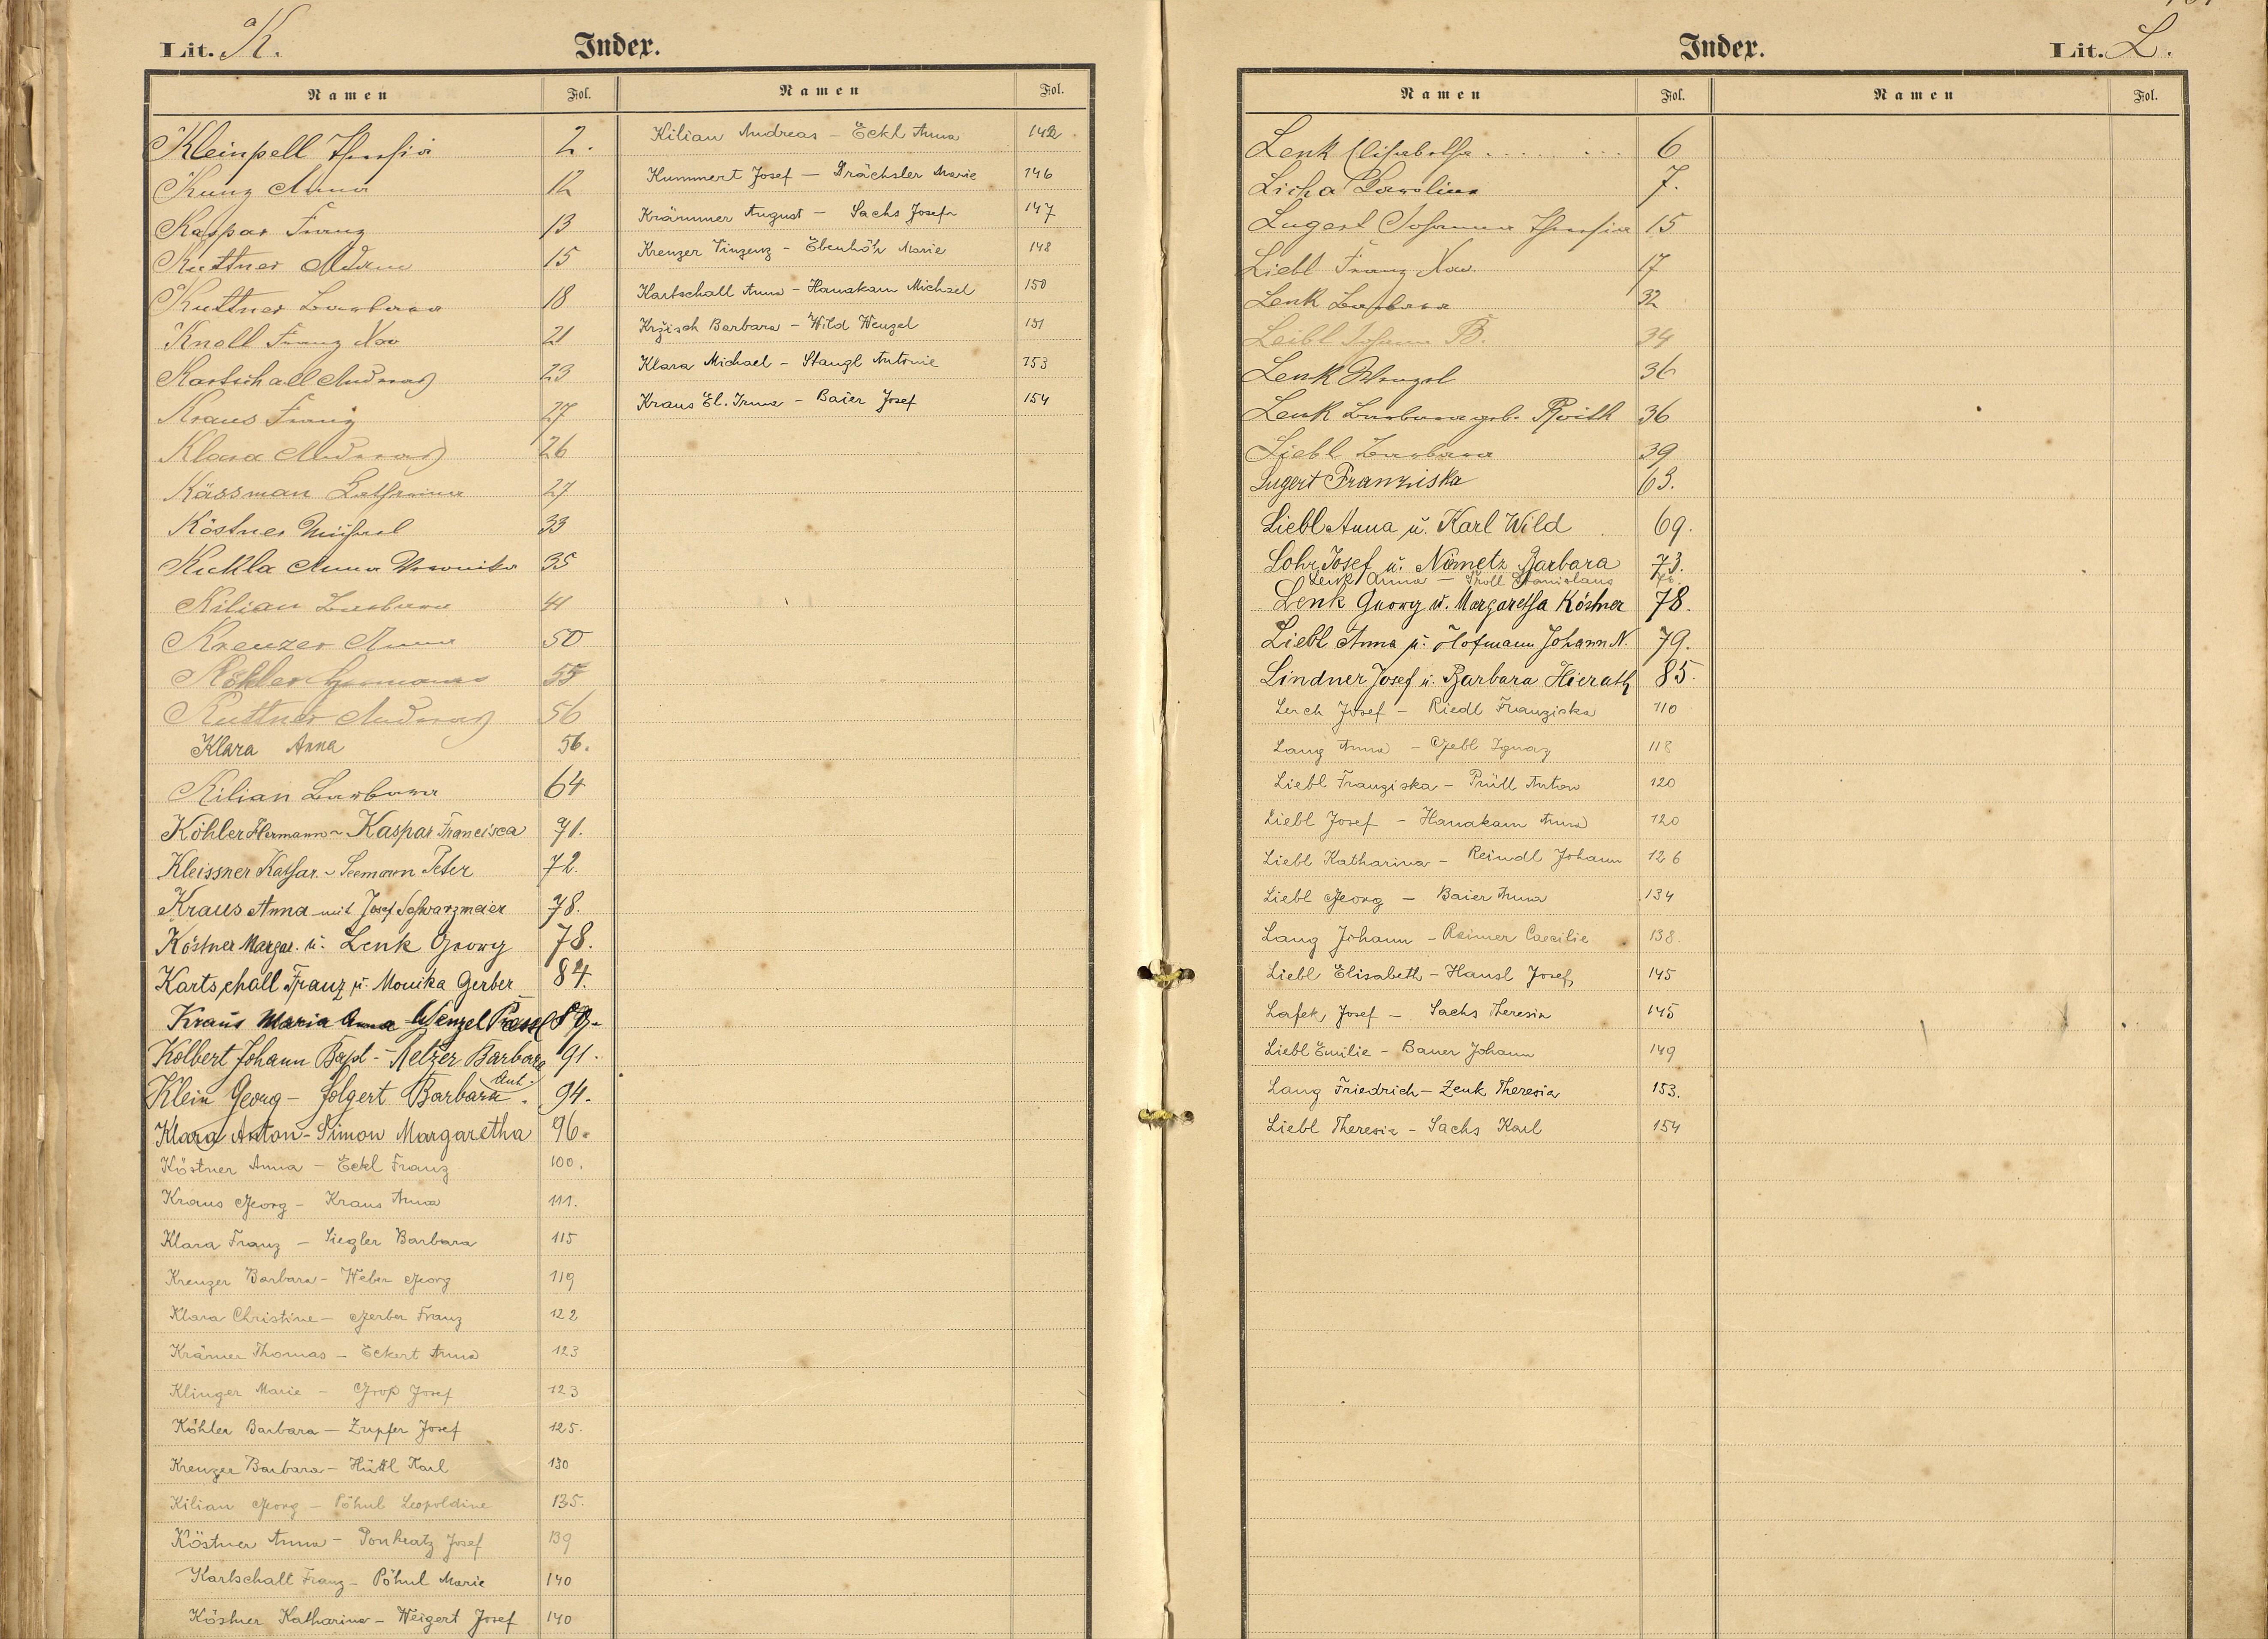 Lit. K.
Index.
Namen Fol. Namen Fol.
Kleinpell Theresia 2.
Kunz Anna 12
Kaspar Franz 13
Kuttner Adam 15
Kuttner Barbara 18
Knoll Franz Xav 21
Kartschall Andreas 23
Kraus Franz 27
Klara Andreas 26
Kässman Katharina 27
Köstner Michael 33
Kuckla Anna Veronika 35
Kilian Barbara 41
Kreuzer Anna 50
Köhler Hermann 55
Kuttner Andreas 56
Klara Anna 56.
Kilian Barbara 64
Köhler Hermann - Kaspar Francisca 71.
Kleissner Kathar. - Seemann Peter 72.
Kraus Anna mit Josef Schwarzmeier 78.
Köstner Margar. u. Lenk Georg 78.
Kartschall Franz u. Monika Gerber 84.
Kraus Maria Anna Wenzel
Kolbert Johann Bapt - Melzer Barbara 91.
Klein Georg - Folgert Barbara Ant. 94.
Klara Anton - Simon Margaretha 96.
Köstner Anna - Eckl Franz 100.
Kraus Georg - Kraus Anna 111.
Klara Franz - Siegler Barbara 115
Kreuzer Barbara - Weber Georg 119
Klara Christine - Gerber Franz 122
Krämer Thomas - Eckert Anna 123
Klinger Marie - Groß Josef 123
Köhler Barbara - Zupfer Josef 125.
Kreuzer Barbara - Hüttl Karl 130
Kilian Georg - Pöhnl Leopoldine 135.
Köstner Anna - Ponkratz Josef 139
Kartschall Franz - Pöhnl Marie 140
Köstner Katharina - Weigert Josef 140
Kilian Andreas - Eckl Anna 142
Kummert Josef - Drächsler Marie 146
Krämmer August - Sachs Josefa 147
Kreuzer Vinzenz - Ebenhöh Marie 148
Kartschall Anna - Hanakam Michael 150
Kržisch Barbara - Wild Wenzel 151
Klara Michael - Stangl Antonie 153
Kraus El. Irma - Baier Josef 154
Index.
Lit. L.
Namen Fol. Namen Fol.
Lenk Elisabetha 6
Licha Karolina 7.
Lugert Johanna Theresia 15
Liebl Franz Xav. 17
Lenk Barbara 32
Leibl Johann B. 34
Lenk Wenzel 36
Lenk Barbara geb. Roith 36
Liebl Barbara 39
Lugert Franziska 63.
Liebl Anna u. Karl Wild 69.
Lohr Josef u. Nemetz Barbara 73.
Lenk Anna - Troll Stanislaus 76.
Lenk Georg u. Margaretha Köstner 78.
Liebl Anna u. Hofmann Johann N. 79.
Lindner Josef u. Barbara Hierath 85.
Lerch Josef - Riedl Franziska 110
Lang Anna - Gebl Ignaz 118
Liebl Franziska - Prüll Anton 120
Liebl Josef - Hanakam Anna 120
Liebl Katharina - Reindl Johann 126
Liebl Georg - Baier Anna 134
Lang Johann - Reimer Caecilie 138.
Liebl Elisabeth - Hansl Josef 145
Lafek Josef - Sachs Theresia 145
Liebl Emilie - Bauer Johann 149
Lang Friedrich - Zenk Theresia 153.
Liebl Theresia - Sachs Karl 154